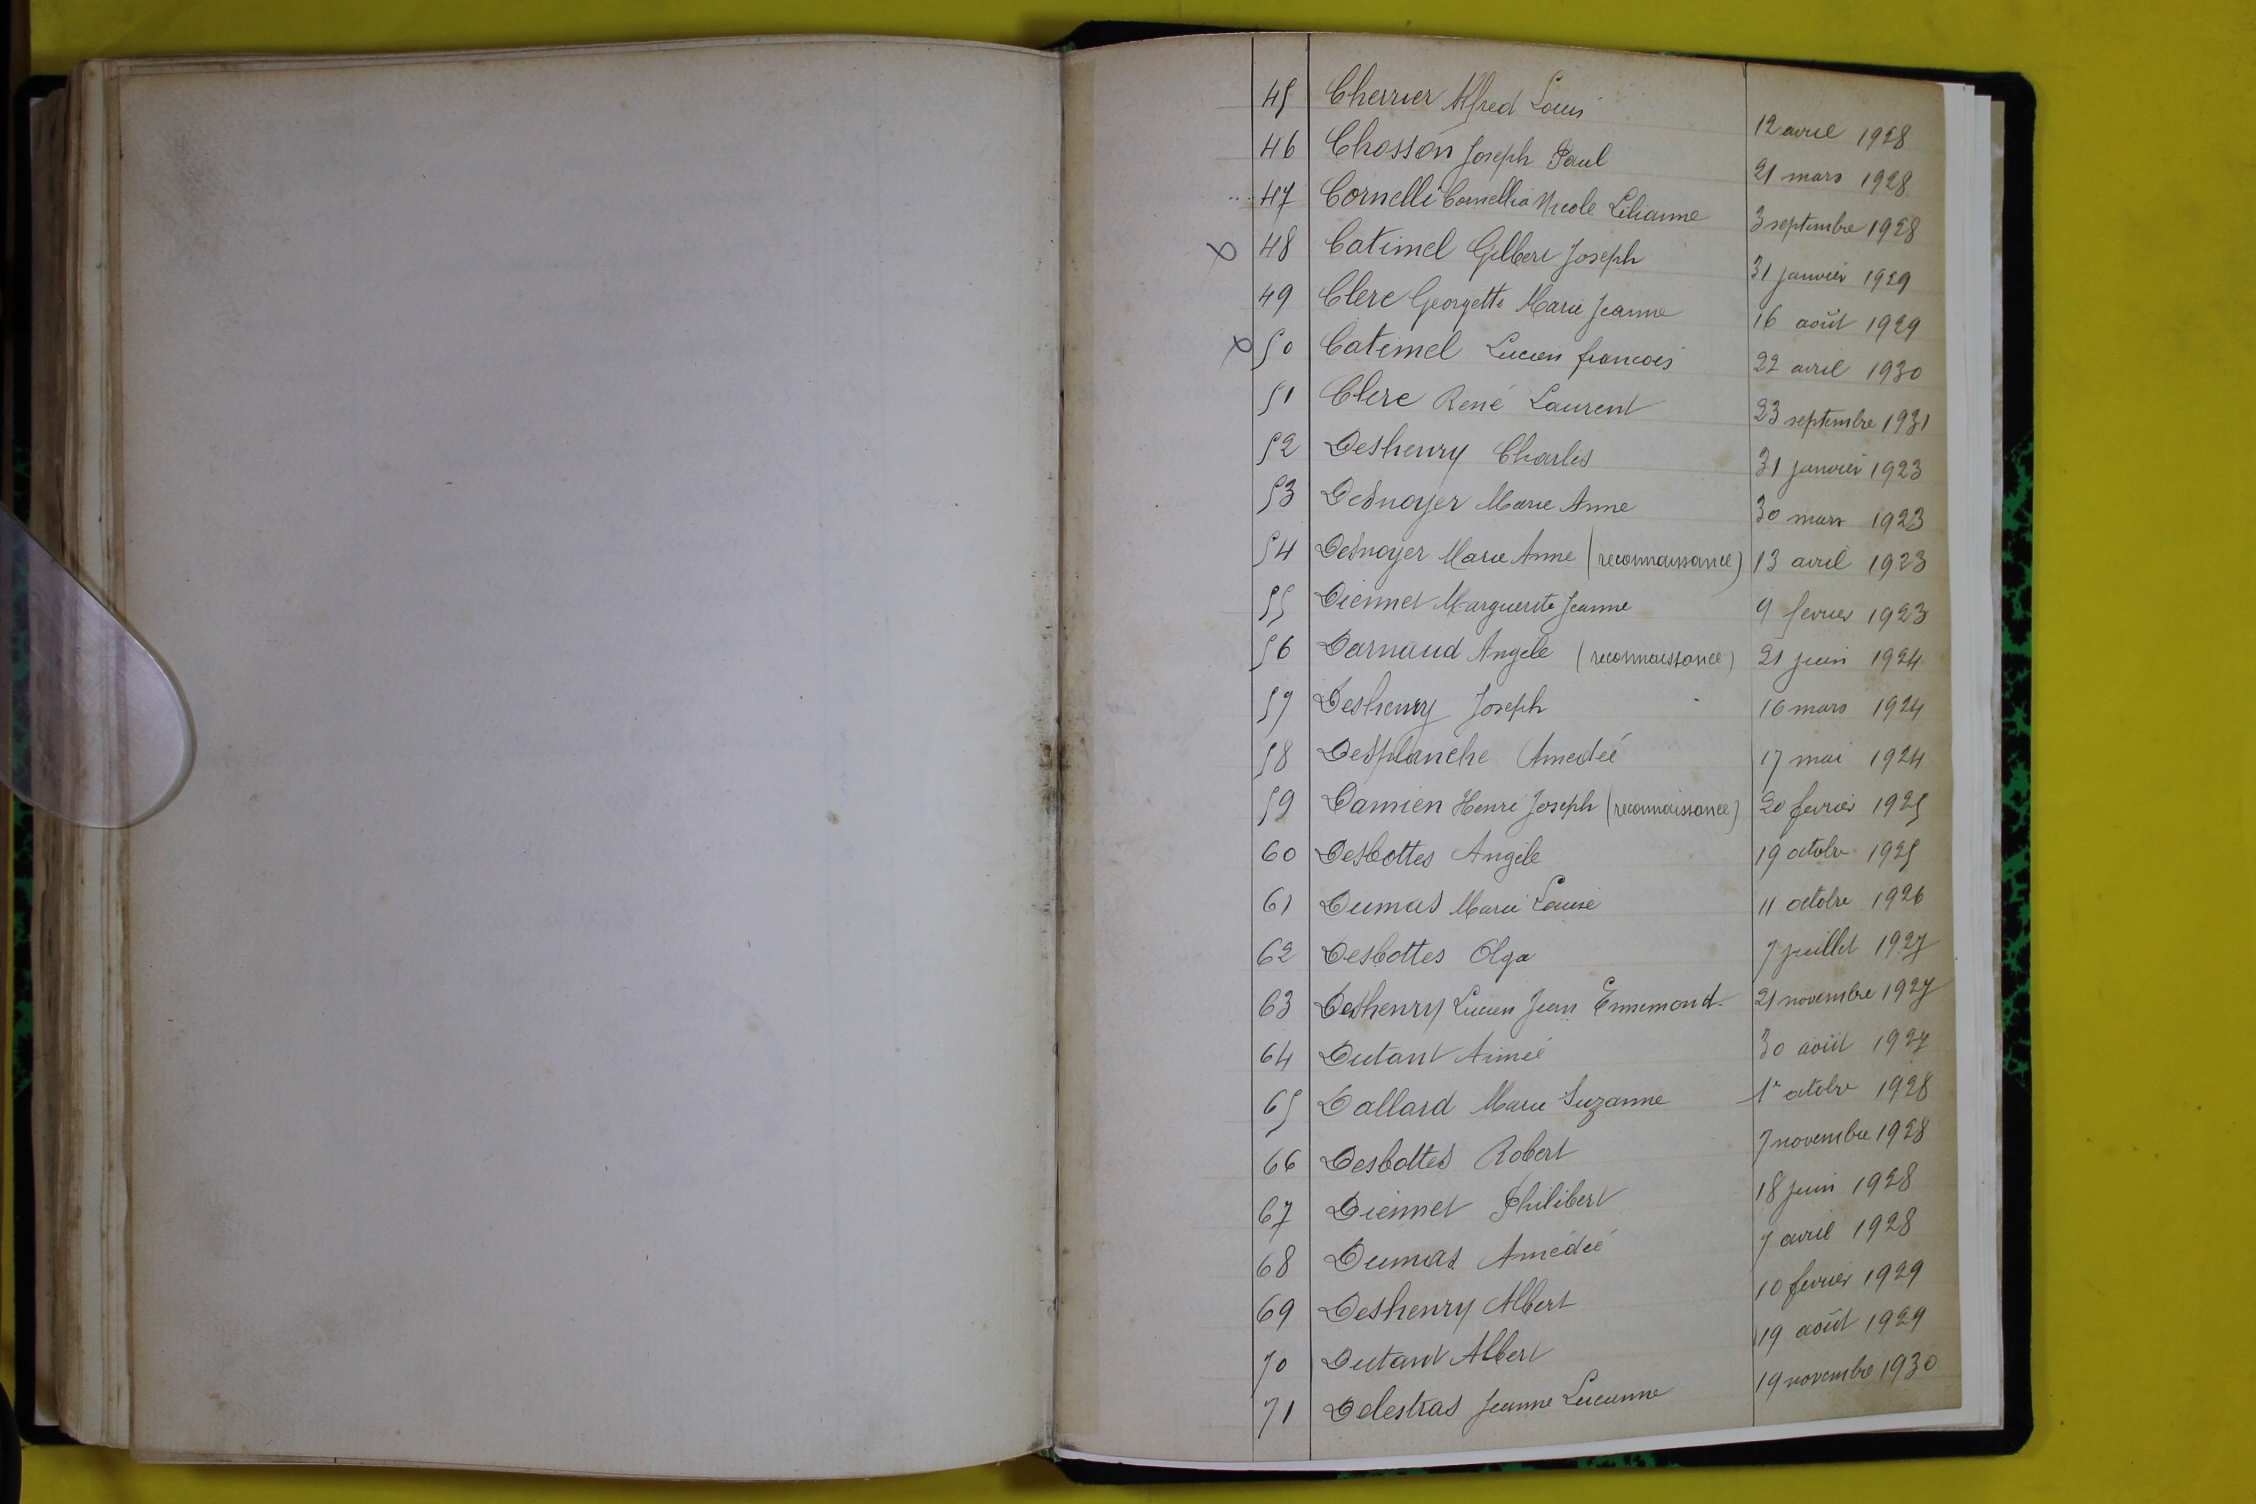 45 Cherrier Alfred Louis 12 avril 1928
46 Chosson Joseph Paul 21 mars 1928
47 Cornelli Cornellia Nicole Lilianne 3 septembre 1928
48 Catimel Gilbert Joseph 31 janvier 1929
49 Clerc Georgette Marie Jeanne 16 août 1929
50 Catimel Lucien francois 22 avril 1930
51 Clerc René Laurent 23 septembre 1931
52 Deshenry Charles 31 janvier 1923
53 Desnoyer Marie Anne 30 mars 1923
54 Desnoyer Marie Anne (reconnaissance) 13 avril 1923
55 Diennet Marguerite Jeanne 9 fevrier 1923
56 Darnaud Angele (reconnaissance) 21 juin 1924
57 Deshenry Joseph 16 mars 1924
58 Desplanche Amedée 17 mai 1924
59 Damien Henri Joseph (reconnaissance) 20 fevrier 1925
60 Desbottes Angèle 19 octobre 1925
61 Dumas Marie Louise 11 octobre 1926
62 Desbottes Olga 7 juillet 1927
63 Deshenry Lucien Jean Ennemond 21 novembre 1927
64 Dutant Aimée 30 août 1927
65 Dallard Marie Suzanne 1er octobre 1928
66 Desbottes Robert 7 novembre 1928
67 Diennet Philibert 18 juin 1928
68 Dumas Amédée 7 avril 1928
69 Deshenry Albert 10 fevrier 1929
70 Dutant Albert 19 août 1929
71 Delestras Jeanne Lucienne 19 novembre 1930